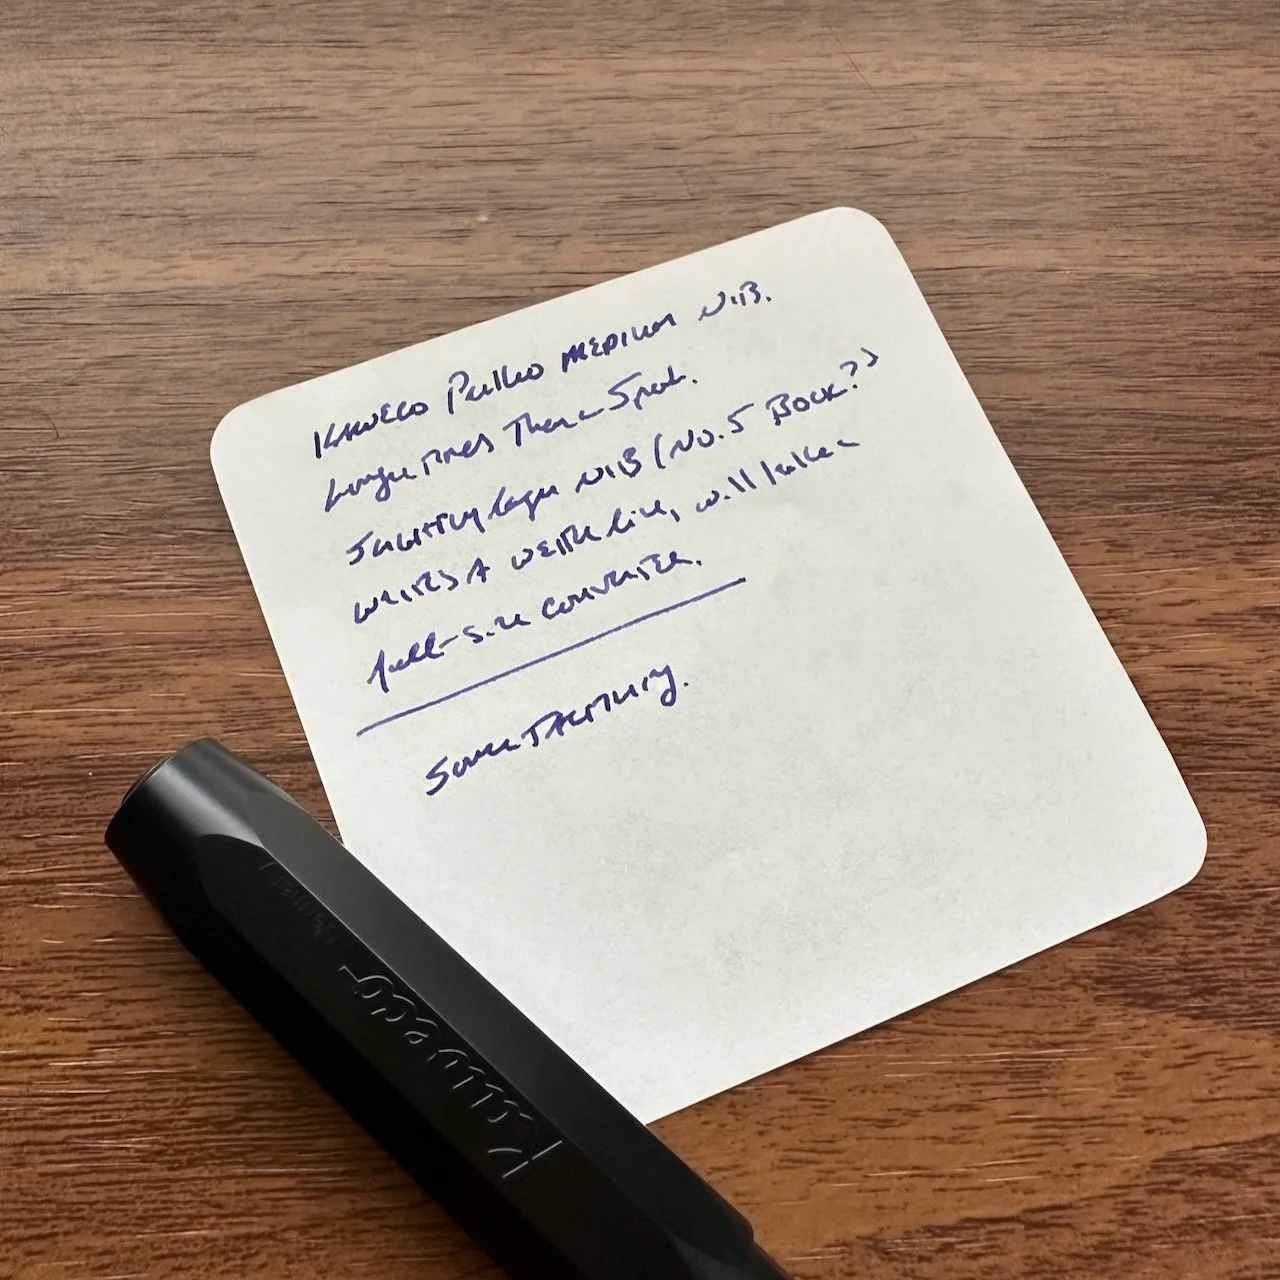 KAWECO Perkeo MEDIUM NIB.
Longer than a Sport.
Slightly larger NIB (No. 5 Bock?)
writes A wetter line, will take a
full-size converter.
Some
Kaweco
Germany